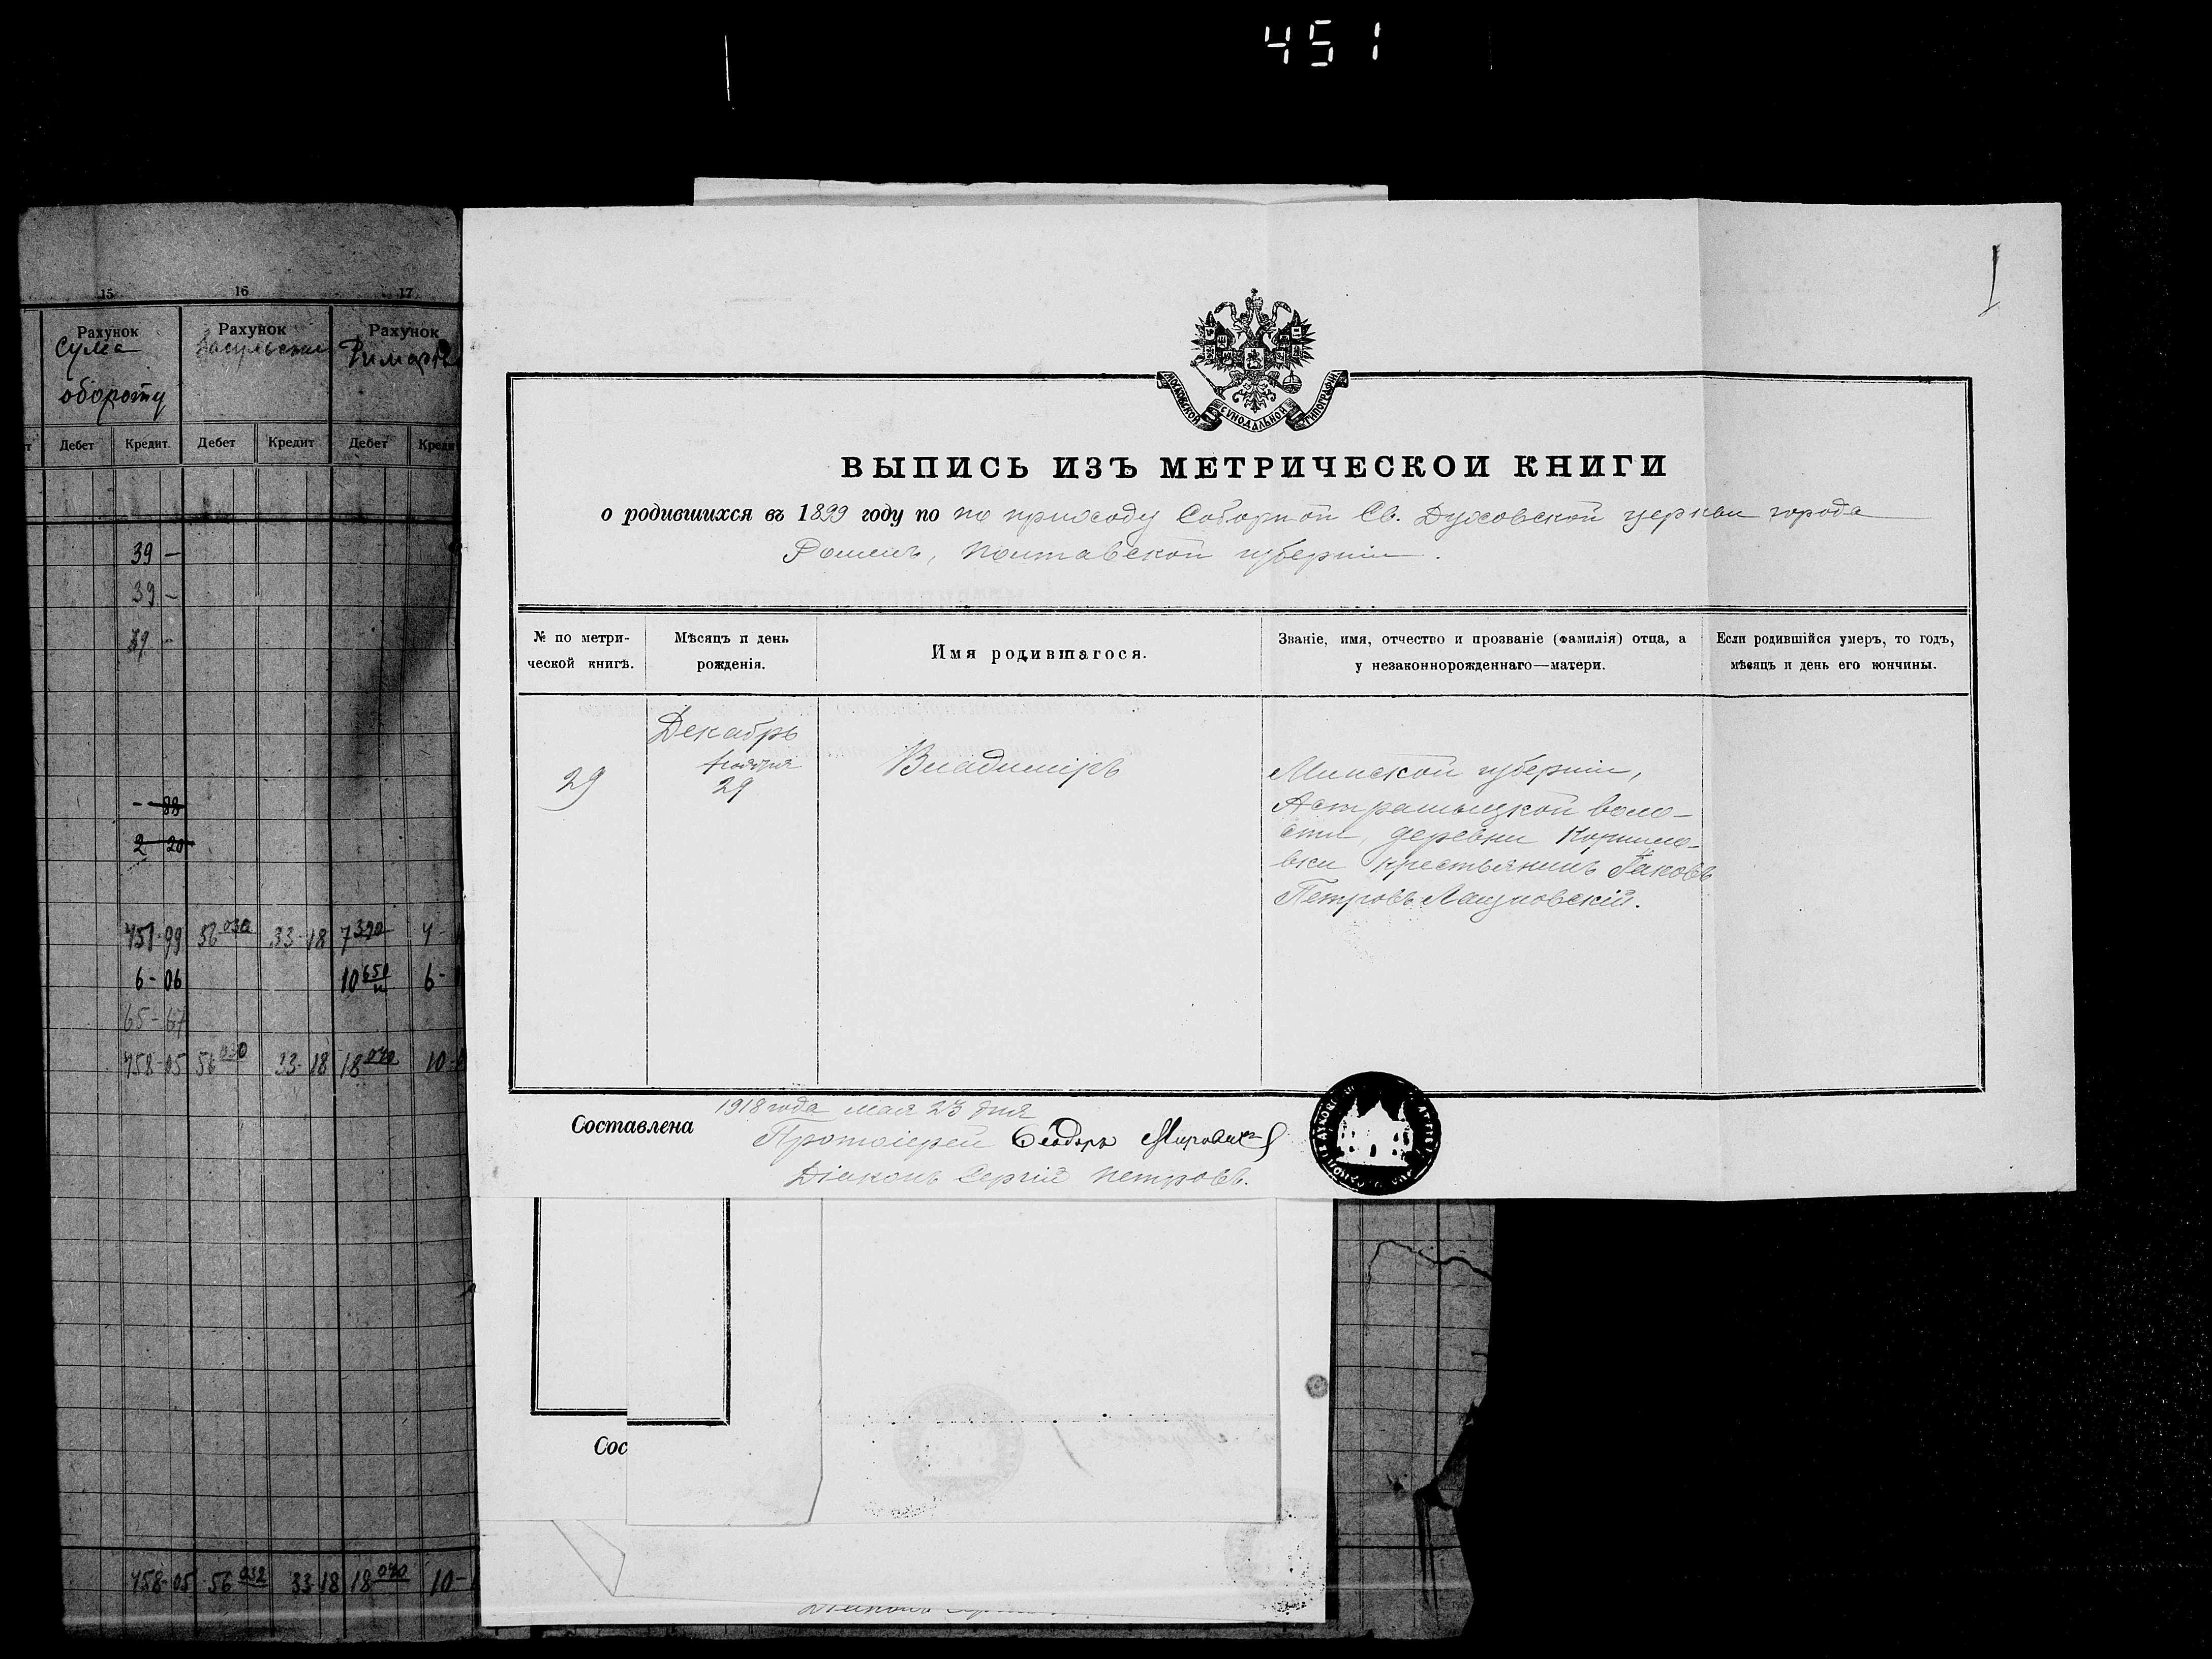 451
15 16 17
Рахунок Рахунок Рахунок
Сума
обороту
Дебет Кредит. Дебет Кредит Дебет
39 —
39 —
39 —
- 88
2 20
751-99 56 030 33-18 7 390
6-06 10 650 6-
65-67
758-05 56 030 33-18 18 040 10-
758-05 56 032 33 18 18 040 10-
МОСКОВСКОЙ СѴНОДАЛЬНОЙ ТИПОГРАФІИ
ВЫПИСЬ ИЗЪ МЕТРИЧЕСКОЙ КНИГИ
о родившихся въ 1899 году по по приходу Соборной Св. Духовской церкви города
Роменъ, Полтавской губерніи.
№ по метри-
ческой книгѣ.
Мѣсяцъ и день
рожденія.
Имя родившагося.
Званіе, имя, отчество и прозваніе (фамилія) отца, а
у незаконнорожденнаго—матери.
Если родившійся умеръ, то годъ,
мѣсяцъ и день его кончины.
Декабрь
29
29
Владиміръ
Минской губерніи,
воло-
сти, деревни
вки крестьянинъ Іаковъ
Петровъ
Составлена 1918 года мая 23 дня
Протоіерей Ѳеодоръ
Діаконъ Сергій Петровъ.
Сос